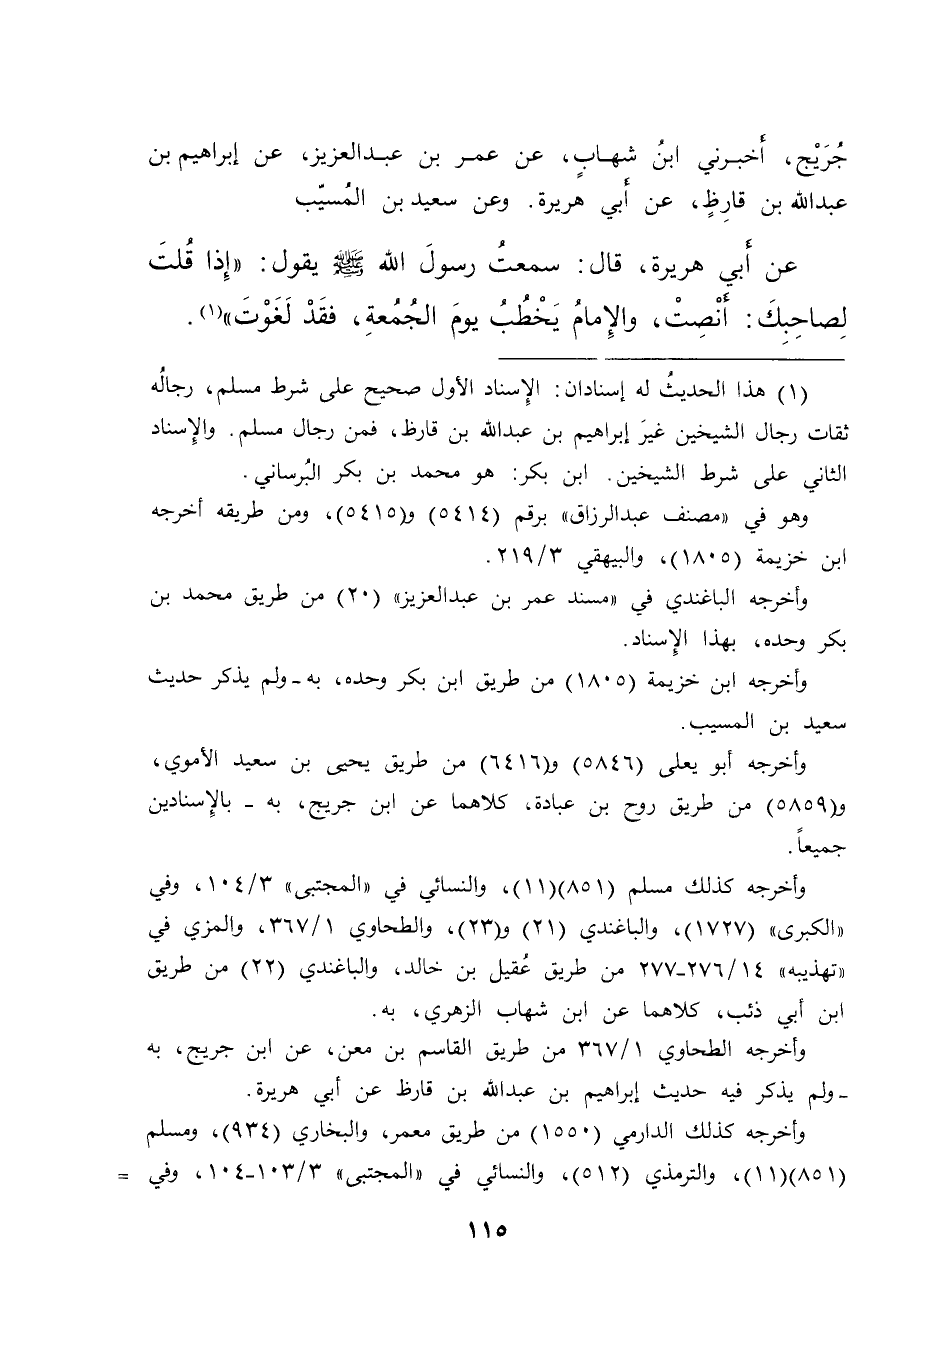 جُرَيْج، أَخبرني ابنُ شهابٍ، عن عمر بن عبدالعزيز، عن إبراهيم بن
عبدالله بن قارِظٍ، عن أَبي هريرة. وعن سعيد بن المُسيّب
عن أَبي هريرة، قال: سمعتُ رسولَ الله ﷺ يقول: «إِذا قُلتَ
لِصاحِبِكَ: أَنْصِتْ، والإِمامُ يَخْطُبُ يومَ الجُمُعةِ، فقَدْ لَغَوْتَ»(١).
(١) هذا الحديثُ له إسنادان: الإِسناد الأول صحيح على شرط مسلم، رجالُه
ثقات رجال الشيخين غيرَ إبراهيم بن عبدالله بن قارظ، فمن رجال مسلم. والإِسناد
الثاني على شرط الشيخين. ابن بكر: هو محمد بن بكر البُرساني.
وهو في «مصنف عبدالرزاق» برقم (٥٤١٤) و(٥٤١٥)، ومن طريقه أخرجه
ابن خزيمة (١٨٠٥)، والبيهقي ٢١٩/٣.
وأخرجه الباغندي في «مسند عمر بن عبدالعزيز» (٢٠) من طريق محمد بن
بكر وحده، بهذا الإِسناد.
وأخرجه ابن خزيمة (١٨٠٥) من طريق ابن بكر وحده، به ـ ولم يذكر حديث
سعيد بن المسيب.
وأخرجه أبو يعلى (٥٨٤٦) و(٦٤١٦) من طريق يحيى بن سعيد الأموي،
و(٥٨٥٩) من طريق روح بن عبادة، كلاهما عن ابن جريج، به ـ بالإِسنادين
جميعاً.
وأخرجه كذلك مسلم (٨٥١)(١١)، والنسائي في «المجتبى» ١٠٤/٣، وفي
«الكبرى» (١٧٢٧)، والباغندي (٢١) و(٢٣)، والطحاوي ٣٦٧/١، والمزي في
«تهذيبه» ٢٧٦/١٤-٢٧٧ من طريق عُقيل بن خالد، والباغندي (٢٢) من طريق
ابن أبي ذئب، كلاهما عن ابن شهاب الزهري، به.
وأخرجه الطحاوي ٣٦٧/١ من طريق القاسم بن معن، عن ابن جريج، به
ـ ولم يذكر فيه حديث إبراهيم بن عبدالله بن قارظ عن أبي هريرة.
وأخرجه كذلك الدارمي (١٥٥٠) من طريق معمر، والبخاري (٩٣٤)، ومسلم
(٨٥١)(١١)، والترمذي (٥١٢)، والنسائي في «المجتبى» ١٠٣/٣-١٠٤، وفي =
١١٥